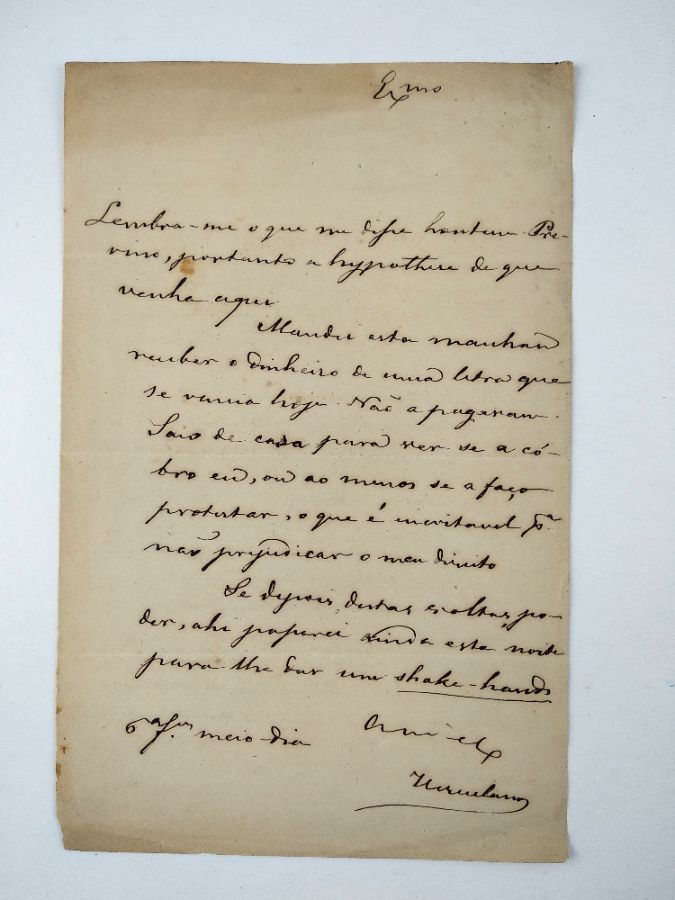 Exmo
Lembra-me o que me disse hontem Pre-
vino, portanto a hypothese de que
venha aqui
Mandei esta manhan
receber o dinheiro de uma letra que
se vencia hoje. Não a pagaram.
Saio de casa para ver se a có-
bro eu, ou ao menos se a faço
protestar, o que é inevitavel pª
não prejudicar o meu direito
Se depois destas voltas, po-
der, ahi passarei ainda esta noite
para lhe dar um shake-hands
6ª fª meio dia
Herculano